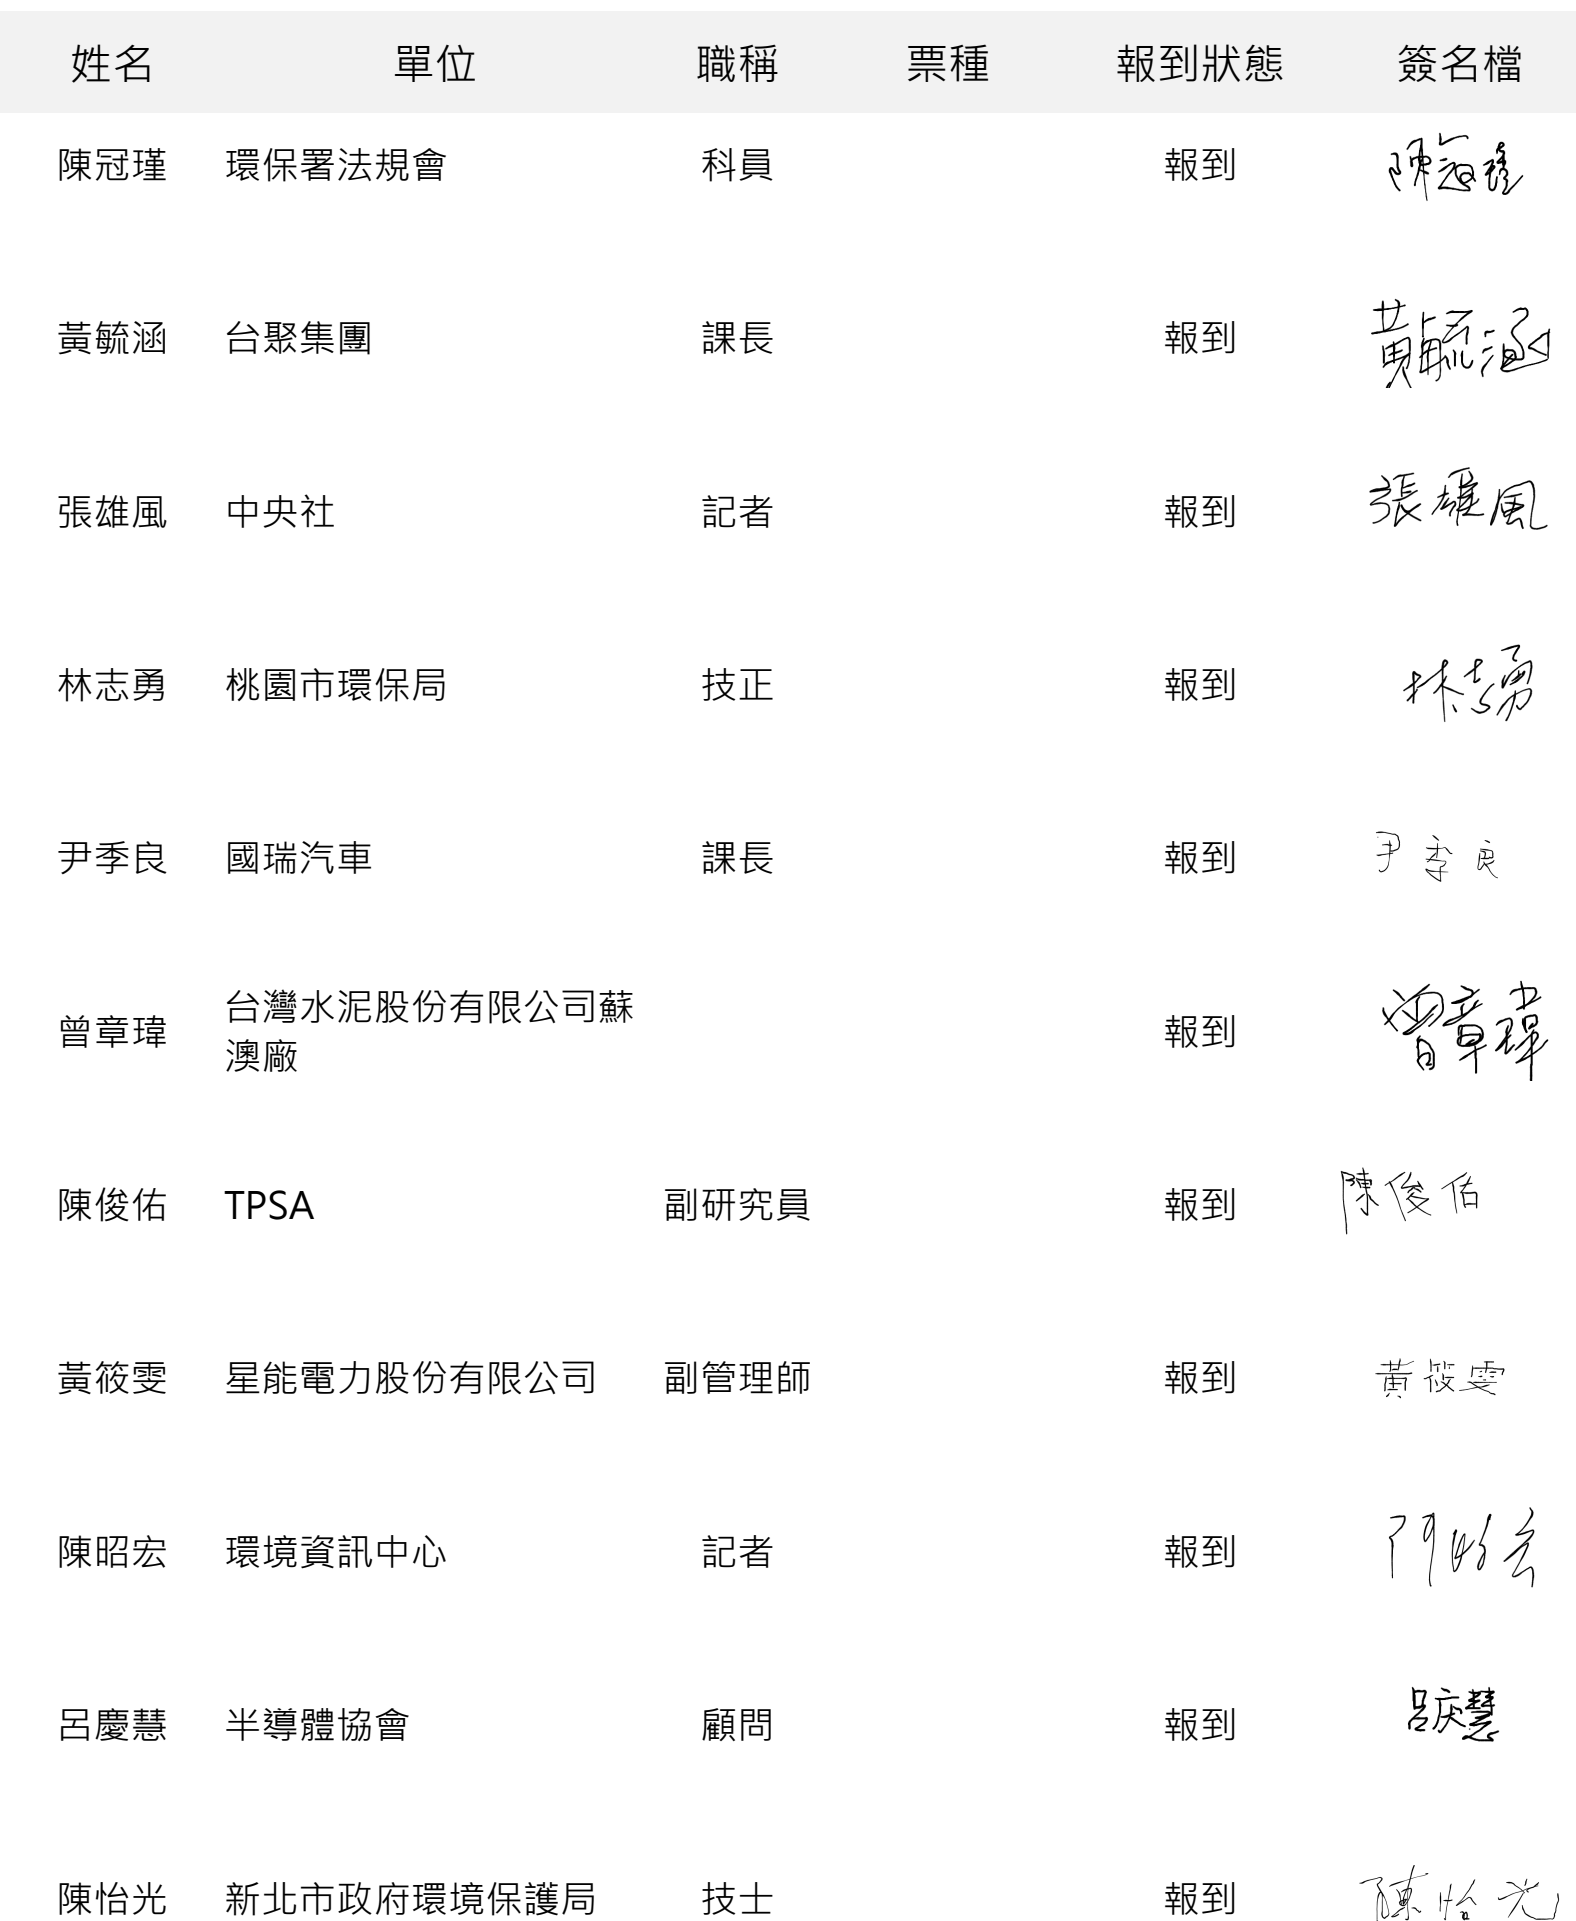 姓名 單位 職稱 票種 報到狀態 簽名檔
陳冠瑾 環保署法規會 科員 報到 陳冠瑾
黃毓涵 台聚集團 課長 報到 黃毓涵
張雄風 中央社 記者 報到 張雄風
林志勇 桃園市環保局 技正 報到 林志勇
尹季良 國瑞汽車 課長 報到 尹季良
曾章瑋 台灣水泥股份有限公司蘇 報到 曾章瑋
澳廠
陳俊佑 TPSA 副研究員 報到 陳俊佑
黃筱雯 星能電力股份有限公司 副管理師 報到 黃筱雯
陳昭宏 環境資訊中心 記者 報到 陳昭宏
呂慶慧 半導體協會 顧問 報到 呂庆慧
陳怡光 新北市政府環境保護局 技士 報到 陳怡光